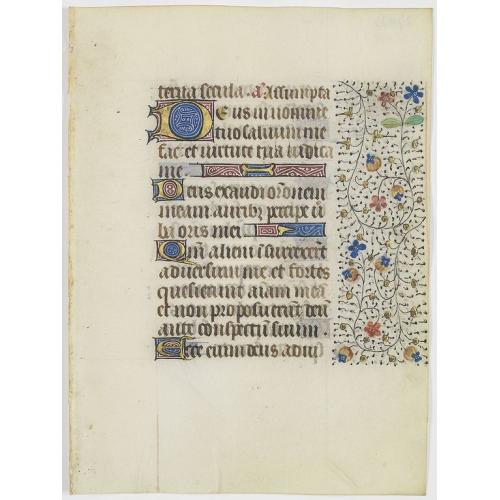 terna secula. a. Assumpta
Deus in nomine
tuo salvum me
fac et virtute tua iudica
me
Deus exaudi oronem
meam auribz percipe v̄
ba oris mei
Qm̄ alieni
adversum me et fortes
quesierunt aīam meā
et non proposuerūt deū
ante conspectū suum.
Ecce enim deus adiu